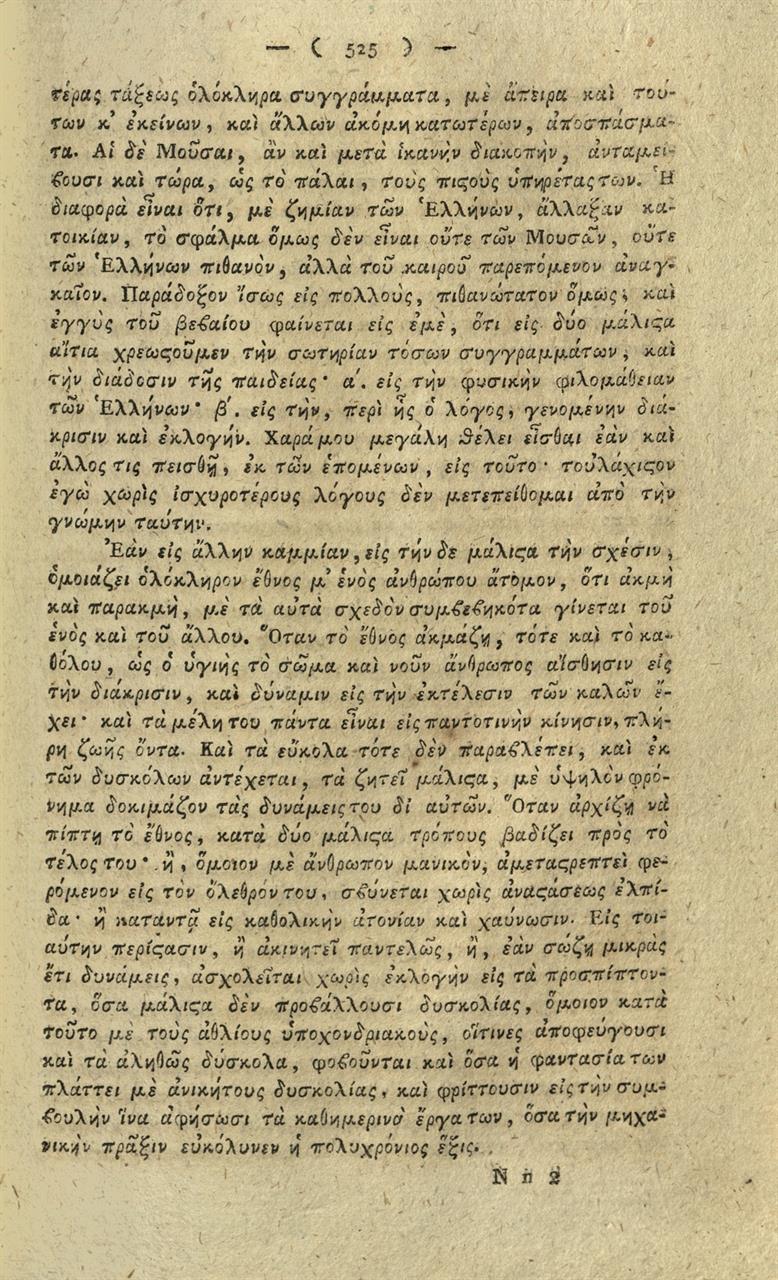 — ( 525 ) —
τέρας τάξεως ὁλόκληρα συγγράμματα, μὲ ἄπειρα καὶ τού-
των κ᾽ ἐκείνων, καὶ ἄλλων ἀκόμη κατωτέρων, ἀποσπάσμα-
τα. Αἱ δὲ Μοῦσαι, ἂν καὶ μετὰ ἱκανὴν διακοπὴν, ἀνταμεί-
βουσι καὶ τώρα, ὡς τὸ πάλαι, τοὺς πιϛοὺς ὑπηρέτας των. Ἡ
διαφορὰ εἶναι ὅτι, μὲ ζημίαν τῶν Ἑλλήνων, ἄλλαξαν κα-
τοικίαν, τὸ σφάλμα ὅμως δὲν εἶναι οὔτε τῶν Μουσῶν, οὔτε
τῶν Ἑλλήνων πιθανὸν, ἀλλὰ τοῦ καιροῦ παρεπόμενον ἀναγ-
καῖον. Παράδοξον ἴσως εἰς πολλοὺς, πιθανώτατον ὅμως, καὶ
ἐγγὺς τοῦ βεβαίου φαίνεται εἰς ἐμὲ, ὅτι εἰς δύο μάλιϛα
αἴτια χρεωϛοῦμεν τὴν σωτηρίαν τόσων συγγραμμάτων, καὶ
τὴν διάδοσιν τῆς παιδείας· α΄. εἰς τὴν φυσικὴν φιλομάθειαν
τῶν Ἑλλήνων· β΄. εἰς τὴν, περὶ ἧς ὁ λόγος, γενομένην διά-
κρισιν καὶ ἐκλογήν. Χαρά μου μεγάλη θέλει εἶσθαι ἐὰν καὶ
ἄλλος τις πεισθῇ, ἐκ τῶν ἑπομένων, εἰς τοῦτο· τοὐλάχιϛον
ἐγὼ χωρὶς ἰσχυροτέρους λόγους δὲν μετεπείθομαι ἀπὸ τὴν
γνώμην ταύτην.
Ἐὰν εἰς ἄλλην καμμίαν, εἰς τήν δε μάλιϛα τὴν σχέσιν,
ὁμοιάζει ὁλόκληρον ἔθνος μ᾽ ἑνὸς ἀνθρώπου ἄτομον, ὅτι ἀκμὴ
καὶ παρακμὴ, μὲ τὰ αὐτὰ σχεδὸν συμβεβηκότα γίνεται τοῦ
ἑνὸς καὶ τοῦ ἄλλου. Ὅταν τὸ ἔθνος ἀκμάζῃ, τότε καὶ τὸ κα-
θόλου, ὡς ὁ ὑγιὴς τὸ σῶμα καὶ νοῦν ἄνθρωπος αἴσθησιν εἰς
τὴν διάκρισιν, καὶ δύναμιν εἰς τὴν ἐκτέλεσιν τῶν καλῶν ἔ-
χει· καὶ τὰ μέλη του πάντα εἶναι εἰς παντοτινὴν κίνησιν, πλή-
ρη ζωῆς ὄντα. Καὶ τὰ εὔκολα τότε δὲν παραβλέπει, καὶ ἐκ
τῶν δυσκόλων ἀντέχεται, τὰ ζητεῖ μάλιϛα, μὲ ὑψηλὸν φρό-
νημα δοκιμάζον τὰς δυνάμεις του δι᾽ αὐτῶν. Ὅταν ἀρχίζῃ νὰ
πίπτῃ τὸ ἔθνος, κατὰ δύο μάλιϛα τρόπους βαδίζει πρὸς τὸ
τέλος του· ἢ, ὅμοιον μὲ ἄνθρωπον μανικὸν, ἀμεταϛρεπτεὶ φε-
ρόμενον εἰς τὸν ὄλεθρόν του, σβύνεται χωρὶς ἀναϛάσεως ἐλπί-
δα· ἢ καταντᾷ εἰς καθολικὴν ἀτονίαν καὶ χαύνωσιν. Εἰς τοι-
αύτην περίϛασιν, ἢ ἀκινητεῖ παντελῶς, ἢ, ἐὰν σώζῃ μικρὰς
ἔτι δυνάμεις, ἀσχολεῖται χωρὶς ἐκλογὴν εἰς τὰ προσπίπτον-
τα, ὅσα μάλιϛα δὲν προβάλλουσι δυσκολίας, ὅμοιον κατὰ
τοῦτο μὲ τοὺς ἀθλίους ὑποχονδριακοὺς, οἵτινες ἀποφεύγουσι
καὶ τὰ ἀληθῶς δύσκολα, φοβοῦνται καὶ ὅσα ἡ φαντασία των
πλάττει μὲ ἀνικήτους δυσκολίας, καὶ φρίττουσιν εἰς τὴν συμ-
βουλὴν ἵνα ἀφήσωσι τὰ καθημερινὰ ἔργα των, ὅσα τὴν μηχα-
νικὴν πρᾶξιν εὐκόλυνεν ἡ πολυχρόνιος ἕξις.
N n 2